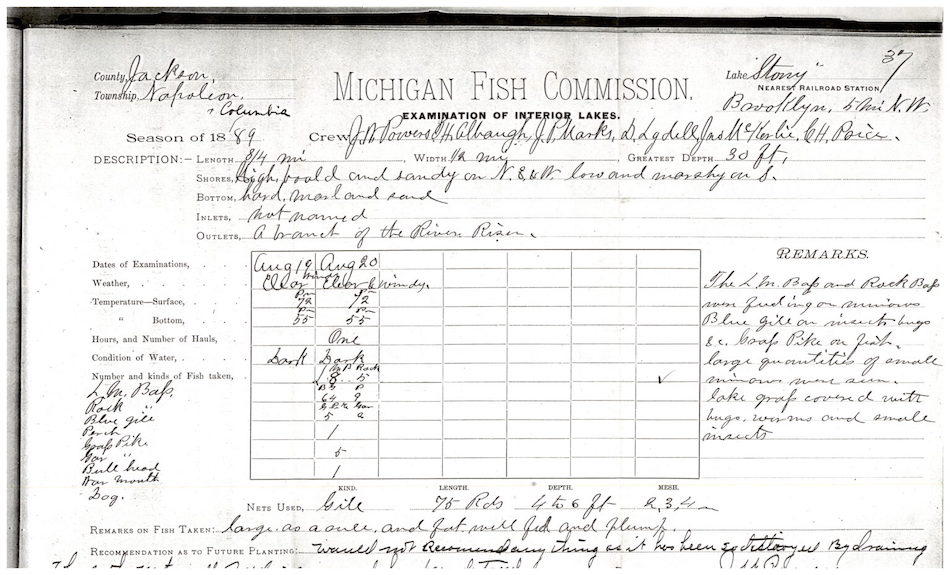 37
County, Jackson,
Township, Napoleon,
" Columbia
MICHIGAN FISH COMMISSION.
EXAMINATION OF INTERIOR LAKES.
Lake "Stony"
NEAREST RAILROAD STATION
Brooklyn, 5 mi N.W.
Season of 1889 Crew J.N. Powers, C.H. Albaugh, J.P. Marks, D. Lydell, Jas McKerlie, C.H. Price.
DESCRIPTION:– LENGTH 3/4 mi, WIDTH 1/2 mi, GREATEST DEPTH 30 ft,
SHORES, high, bould and sandy on N. E & W low and marshy on S.
BOTTOM, hard, marl and sand
INLETS, not named
OUTLETS, A branch of the River Risen.
REMARKS.
Dates of Examinations, Aug 19 Aug 20
Weather, Clear Windy Clear & windy.
Temperature—Surface, Pm 72 Pm 72
" Bottom, Pm 55 Pm 55
Hours, and Number of Hauls, One
Condition of Water, Dark Dark
Number and kinds of Fish taken,
L M B Rock
18 5
B G P
64 9
G P Gar
5 2
1
5
1
L. M. Bass,
Rock "
Blue gill
Perch
Grass Pike
Gar "
Bull head
War mouth
Dog.
The L. M. Bass and Rock Bass
were feeding on minows
Blue gill on insects bugs
&c. Grass Pike on fish.
large quantities of small
minows were seen.
lake grass covered with
bugs, worms and small
insects
KIND. LENGTH. DEPTH. MESH.
NETS USED, Gill 75 Rds 4 to 6 ft 2, 3, 4
REMARKS ON FISH TAKEN: large as a rule, and fat well fed and plump.
RECOMMENDATION AS TO FUTURE PLANTING: would not Recommend any thing as it has been so destroyed By draining